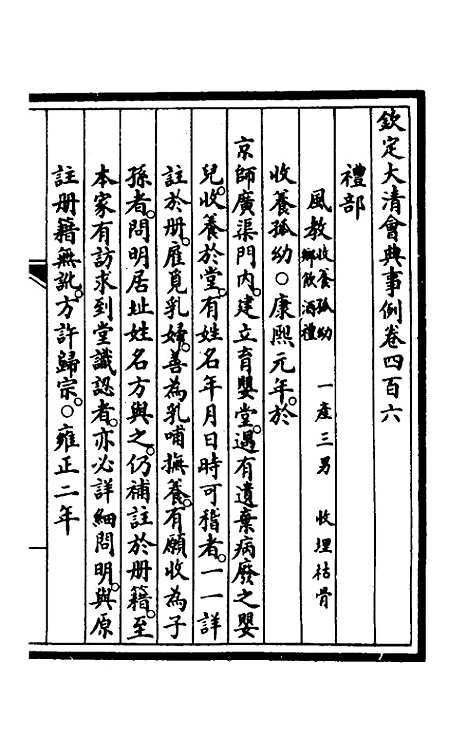 欽定大清會典事例卷四百六
禮部
風教收養孤幼 鄉飲酒禮 一產三男 收埋枯骨
收養孤幼○康熙元年於
京師廣渠門內。建立育嬰堂。遇有遺棄病廢之嬰
兒。收養於堂。有姓名年月日時可稽者。一一詳
註於册。雇覓乳婦。善為乳哺撫養。有願收為子
孫者。問明居址姓名方與之。仍補註於册籍。至
本家有訪求到堂識認者。亦必詳細問明。與原
註册籍無訛。方許歸宗。○雍正二年